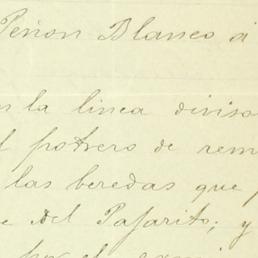 Peñon Blanco á
la linea diviso
potrero de rem
las beredas que
del Pajarito; y
por el